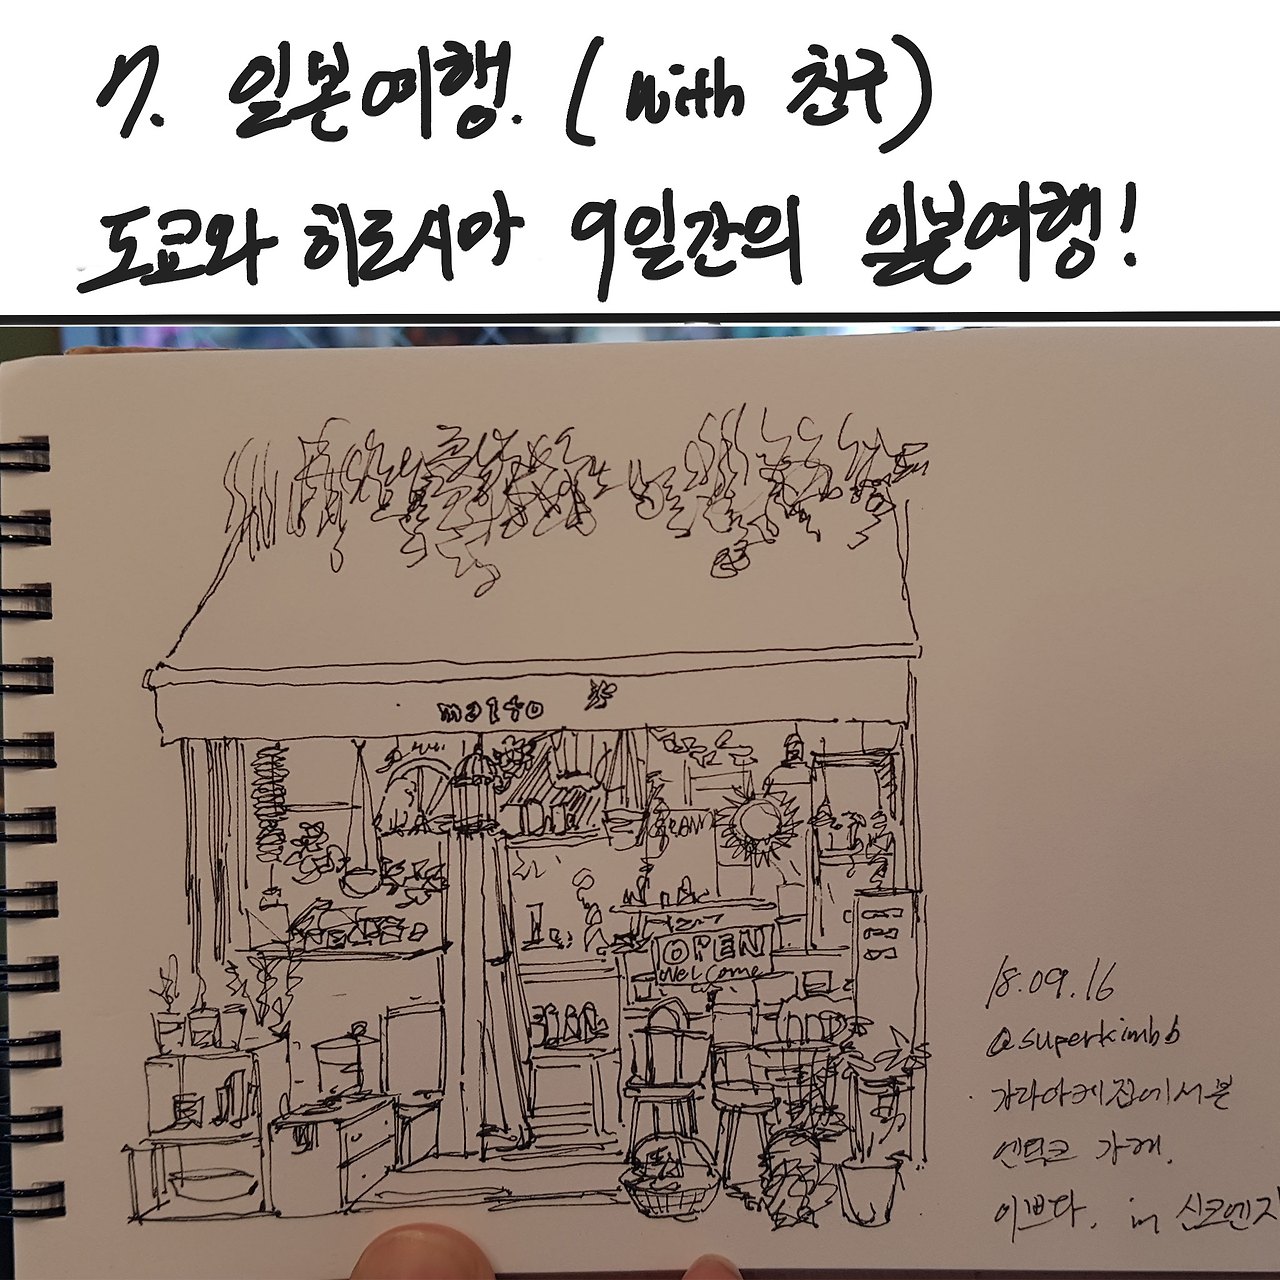 7. 일본여행. (with 친구)
도쿄와 히로시마 9일간의 일본여행!
molto
OPEN
Welcome
18.09.16
@superkimbb
가라아게집에서본
엔틱크 가게.
이쁘다. in 신코엔지